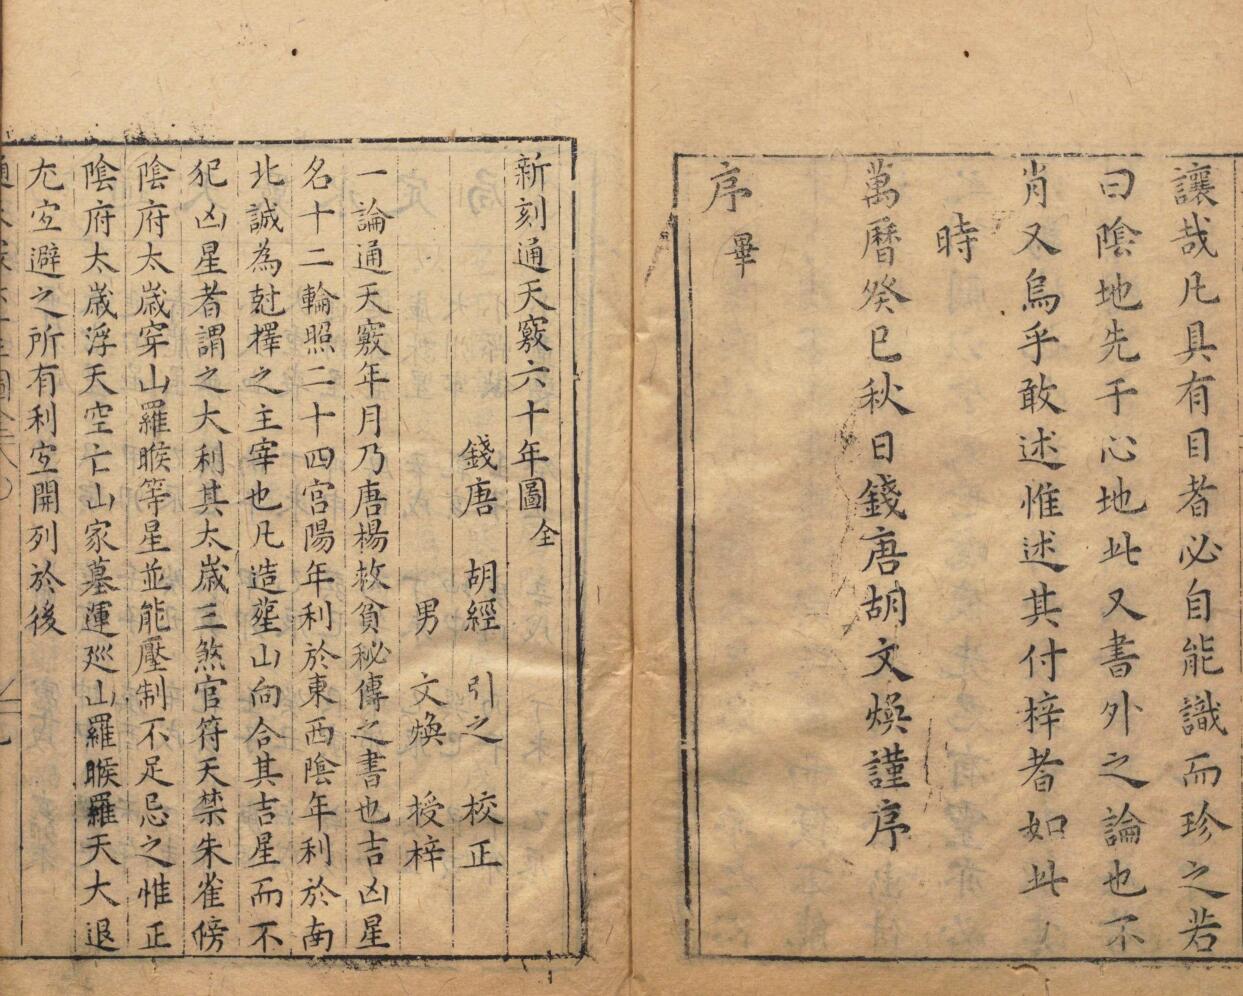 讓哉凡具有目者必自能識而珍之若
曰陰地先于心地此又書外之論也不
肖又烏乎敢述惟述其付梓者如此
時
萬曆癸巳秋日錢唐胡文煥謹序
序畢
新刻通天竅六十年圖全
錢唐 胡經 引之 校正
男 文煥 授梓
一論通天竅年月乃唐楊救貧秘傳之書也吉凶星
名十二輪照二十四宮陽年利於東西陰年利於南
北誠為尅擇之主宰也凡造塟山向合其吉星而不
犯凶星者謂之大利其太歲三煞官符天禁朱雀傍
陰府太歲穿山羅睺等星並能壓制不足忌之惟正
陰府太歲浮天空亡山家墓運廵山羅睺羅天大退
尤宐避之所有利宐開列於後